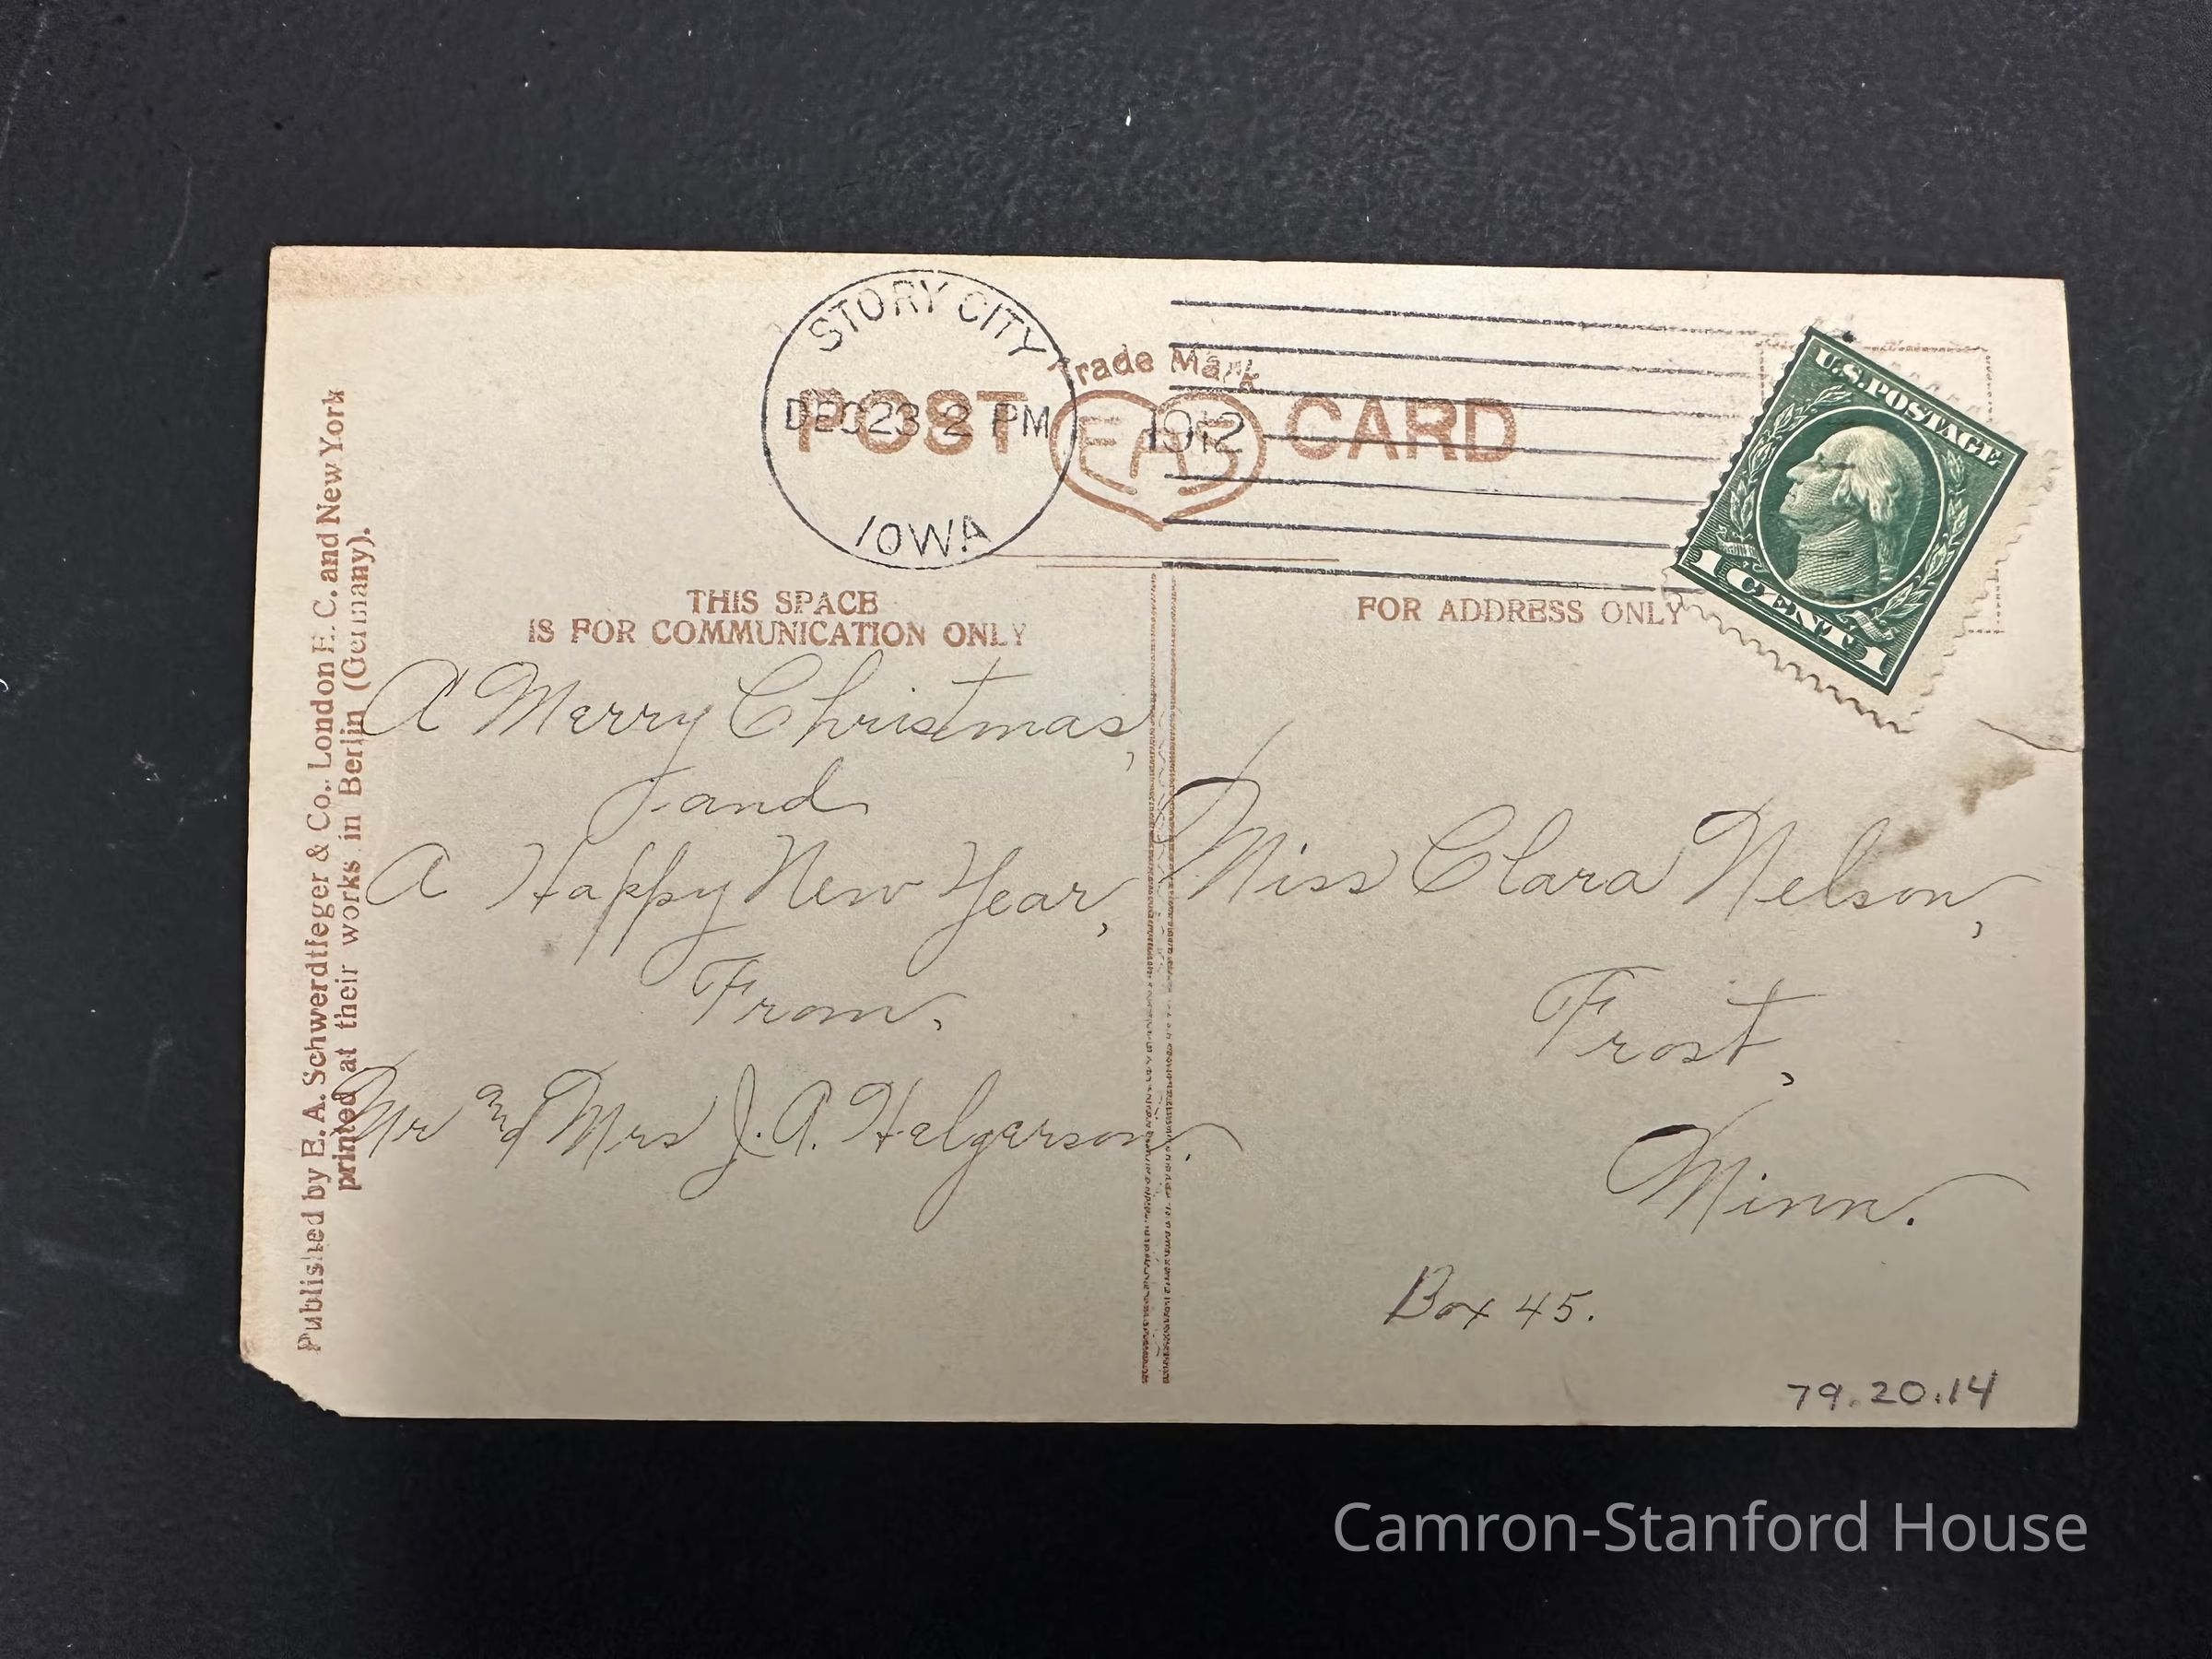 STORY CITY
DEC 23 2 PM
1912
IOWA
Trade Mark
POST EAS CARD
U.S. POSTAGE
1 CENT 1
THIS SPACE
IS FOR COMMUNICATION ONLY
FOR ADDRESS ONLY
A Merry Christmas,
and
A Happy New Year,
From,
Mr and Mrs J. A. Helgerson.
Miss Clara Nelson,
Frost,
Minn.
Box 45.
79.20.14
Published by E. A. Schwerdtfeger & Co., London E. C. and New York
printed at their works in Berlin (Germany).
Camron-Stanford House